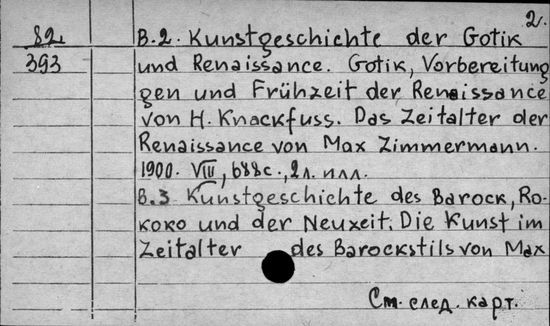 2.
82. B.2. Kunstgeschichte der Gotik
393 und Renaissance. Gotik, Vorbereitun
gen und Frühzeit der Renaissance
von H. Knackfuss. Das Zeitalter der
Renaissance von Max Zimmermann.
1900. VIII, 688c., 2л. илл.
B.3 Kunstgeschichte des Barock, Ro-
koko und der Neuzeit. Die Kunst im
Zeitalter des Barockstils von Max
См. след. карт.